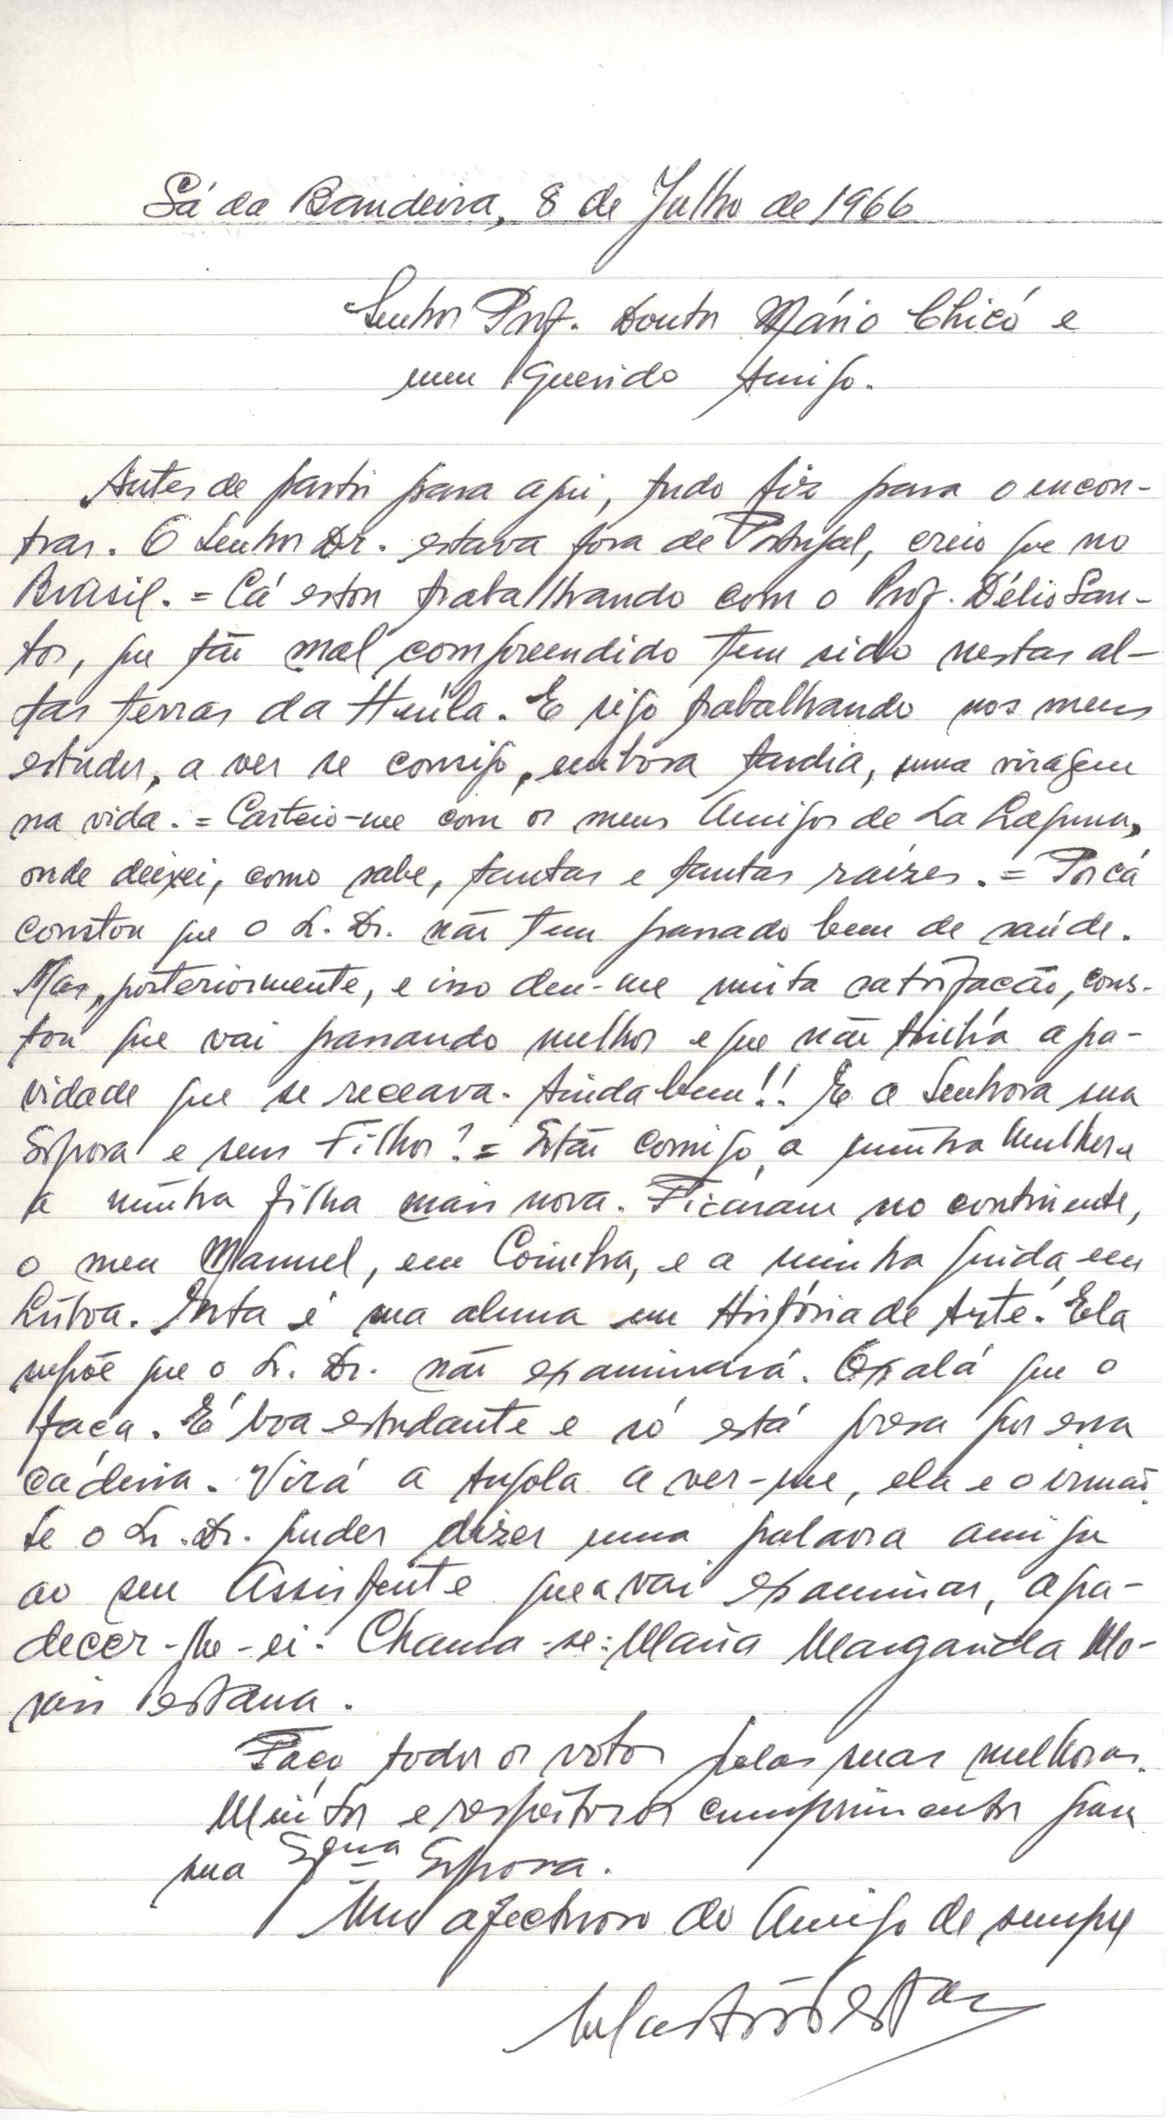 Sá da Bandeira, 8 de Julho de 1966
Senhor Prof. Doutor Mário Chicó e
meu Querido Amigo.
Antes de partir para aqui, tudo fiz para o encon-
trar. O Senhor Dr. estava fora de Portugal, creio que no
Brasil. = Cá estou trabalhando com o Prof. Délio San-
tos, que tão mal compreendido tem sido nestas al-
tas terras da Huíla. E sigo trabalhando nos meus
estudos, a ver se consigo, embora tardia, uma viragem
na vida. = Carteio-me com os meus Amigos de La Laguna,
onde deixei, como sabe, tantas e tantas raízes. = Por cá
constou que o S. Dr. não tem passado bem de saúde.
Mas, posteriormente, e isso deu-me muita satisfação, cons-
tou que vai passando melhor e que não tinha a gra-
vidade que se receava. Ainda bem!! E a Senhora sua
Esposa e seus Filhos? = Estão comigo, a minha Mulher e
a minha filha mais nova. Ficaram no continente,
o meu Manuel, em Coimbra, e a minha Guida em
Lisboa. Esta é sua aluna em História de Arte. Ela
supõe que o Sr. Dr. não examinará. Oxalá que o
faça. É boa estudante e só está presa por essa
cadeira. Virá a Angola a ver-me, ela e o irmão.
Se o Sr. Dr. puder dizer uma palavra amiga
ao seu Assistente que a vai examinar, agra-
decer-lhe-ei. Chama-se: Maria Margarida Mo-
rais Pestana.
Faço todos os votos pelas suas melhoras.
Muitos e respeitosos cumprimentos para
sua Exma Esposa.
Um afectuoso do Amigo de sempre